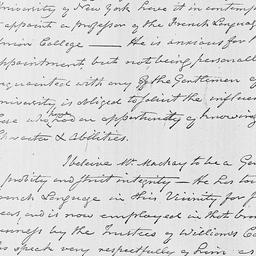 University of New York have it in contemp
appoint a professor of the French Language
Union College — He is anxious for t
appointment but not being personally
acquainted with any of the Gentlemen o
University is obliged to solicit the influen
those who have had an opportunity of knowing
Character & Abilities.
I beleive Mr. Mackay to be a Gen
probity and strict integrity — He has tau
French Language in this Vicinity for f
years, and is now employed in that bran
by the Trustees of Williams Co
to speak very respectfully of him as